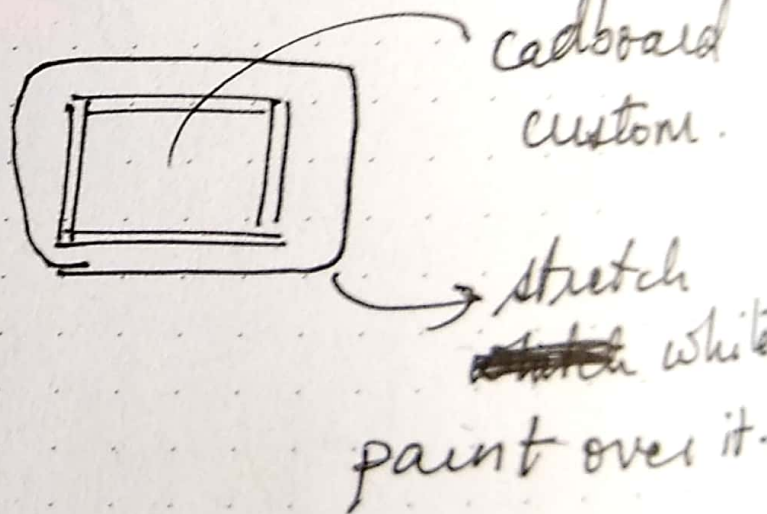 cadboard
custom.
stretch
white
paint over it.